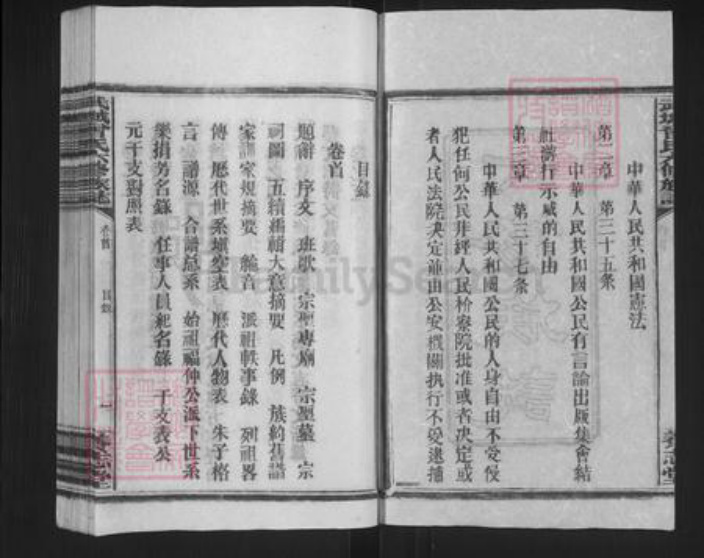 中華人民共和國憲法
第二章　第三十五条
中華人民共和國公民有言論出版集會結
社游行示威的自由
第二章　第三十七条
中華人民共和國公民的人身自由不受侵
犯任何公民非經人民检察院批准或者决定或
者人民法院决定並由公安機關执行不受逮捕
目錄
卷首
題辭　序文　班歌　宗聖專廟　宗聖墓　宗
祠圖　五續編譜大意摘要　凡例　族約
家訓　家規摘要　綸音　派祖軼事錄　列祖畧
傳　歷代世系塡空表　歷代人物表　朱子格
言　譜源　合譜总系　始祖福仲公派下世系
樂捐芳名錄　任事人員紀名錄　干支表公
元干支對照表
卷首
目錄
一
養志堂